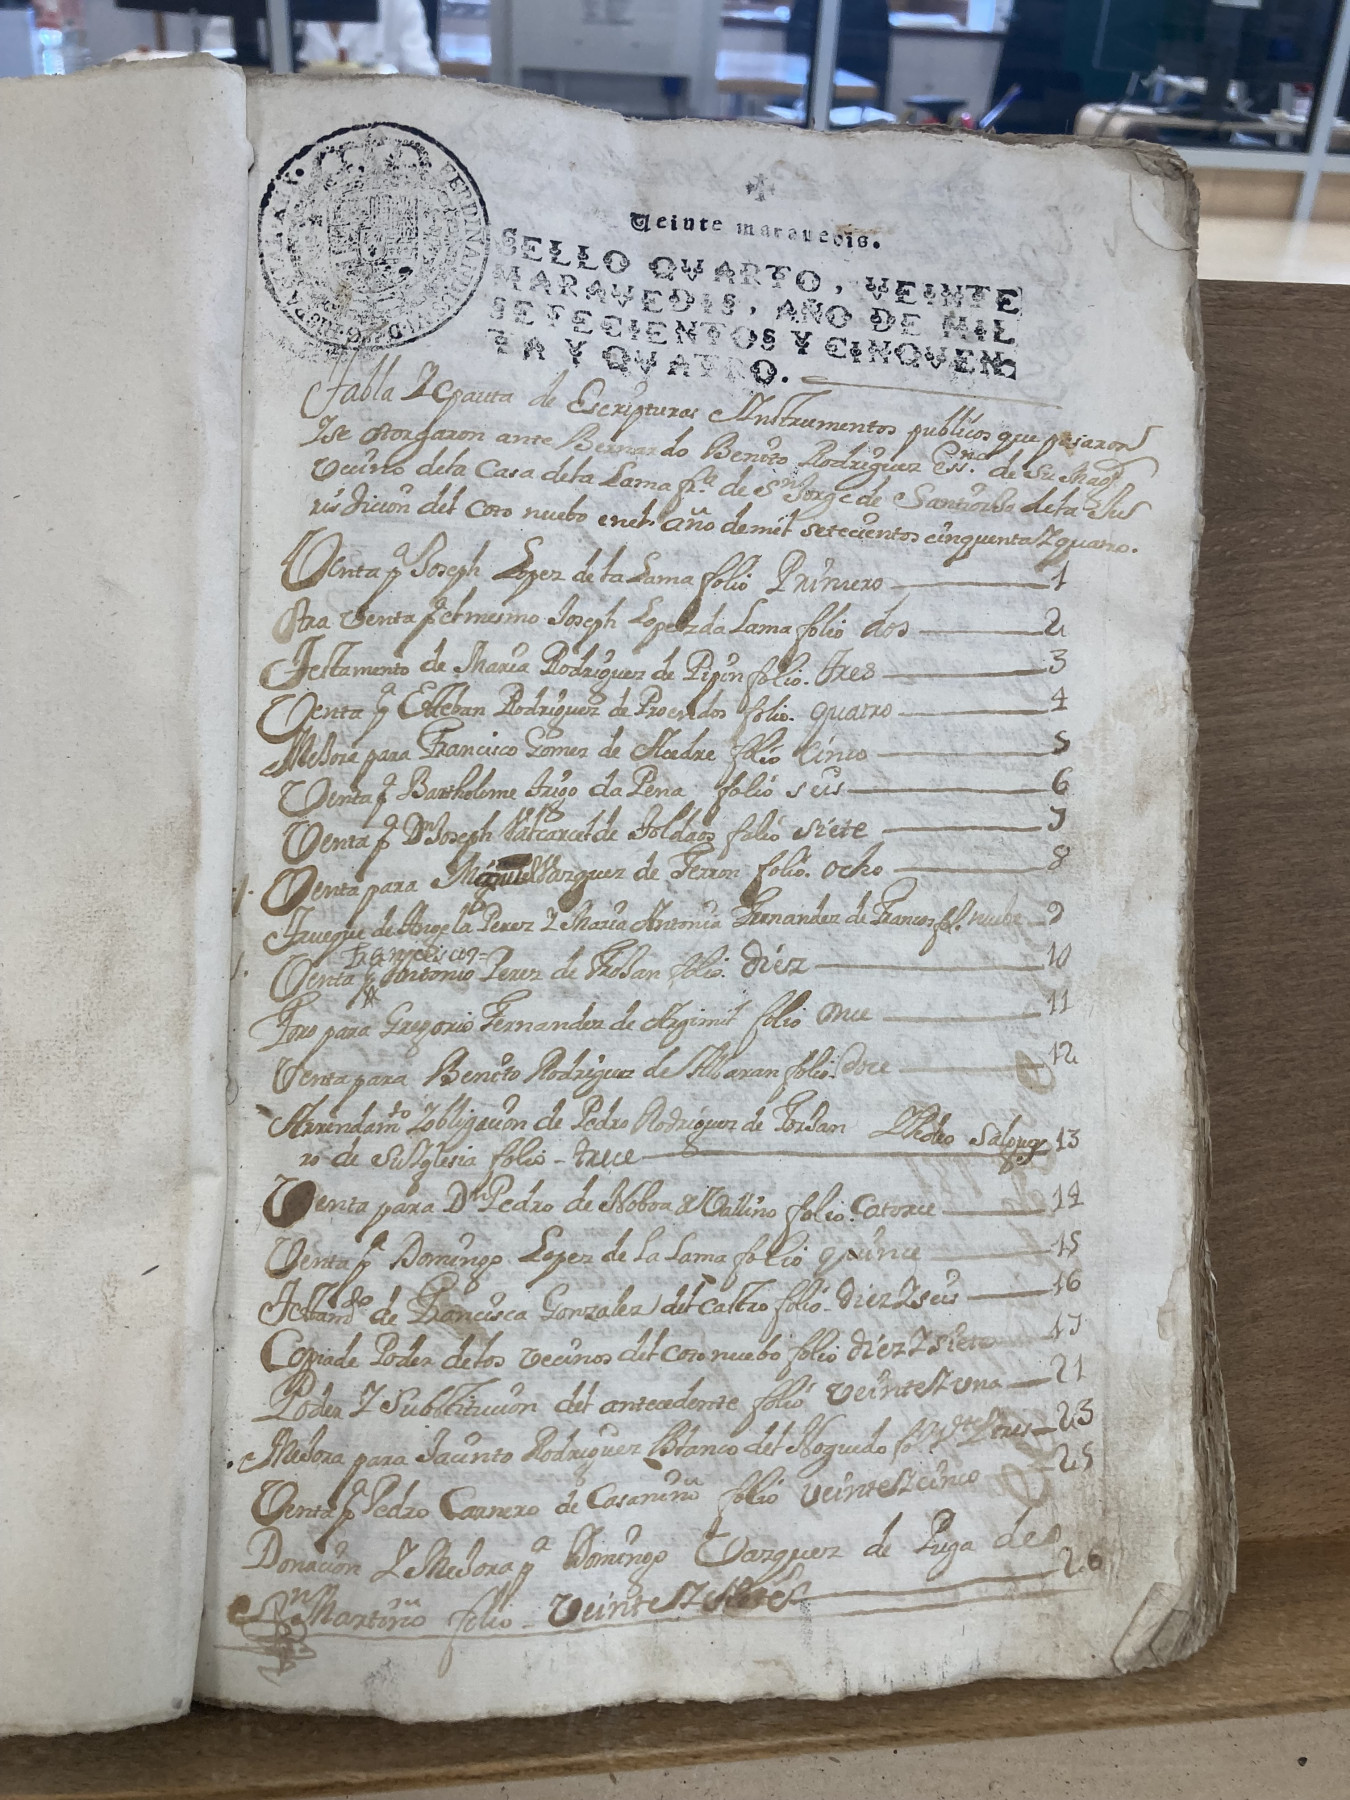 FERDINANDUS VI D G HISPANIAR REX
Veinte maravedis.
SELLO QVARTO, VEINTE
MARAVEDIS, AÑO DE MIL
SETECIENTOS Y CINQVEN-
TA Y QVATRO.
Tabla Y Pauta de Escripturas Instrumentos publicos que pasaron
Y se otorgaron ante Bernardo Benito Rodriguez Ess.no de Su Magd
Vecino de la Casa de la Lama fr.a de Sn Jorge de de la Jur
risdicion del Coto nuebo en el año de mil setecientos cinquenta Y quatro.
Venta pa Joseph Lopez de la Lama folio Primero 1
Otra Venta pa el mesmo Joseph Lopez da Lama folio dos 2
Testamento de Maria Rodriguez de folio. tres 3
Venta pa Esteban Rodriguez de Proendos folio. quatro 4
Mejora para Francisco Gomez de folio Cinco 5
Venta pa Bartholome Trigo da Pena folio seis 6
Venta pa Dn Joseph Valcarcel de Toldaos folio siete 7
Venta para Miguel Vazquez de Ferron folio. ocho 8
Trueque de Angela Perez Y Maria Antonia Fernandez de Francos fol. nuebe 9
Francisco
Venta pa Antonio Perez de folio. diez 10
Foro para Gregorio Fernandez de Argimil folio Once 11
Venta para Benito Rodriguez de folio. doce 12
Arrendamto Y obligacion de Pedro Rodriguez de
ro de Su Yglesia folio - trece 13
Venta para Dn Pedro de Noboa de Vallino folio. Catorce 14
Venta pa Domingo Lopez de la Lama folio quince 15
Testamto de Francisca Gonzalez del Castro folio - diez Y seis 16
Copia de Poder de los vecinos del Coto nuebo folio diez Y siete 17
Poder Y Substitucion del antecedente folio Veinte Y una 21
Mejora para Jacinto Rodriguez Blanco del Nogueido fo Vte Y tres 23
Venta pa Pedro Carnero de Casaniñ folio Veinte Y cinco 25
Donacion Y Mejora pa Domingo Vazquez de Puga de
Sn Martiñ folio - Veinte Y 26